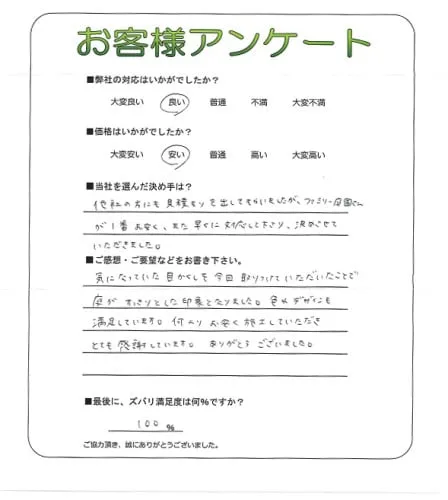 お客様アンケート
■弊社の対応はいかがでしたか？
大変良い 良い 普通 不満 大変不満
■価格はいかがでしたか？
大変安い 安い 普通 高い 大変高い
■当社を選んだ決め手は？
他社の方にも見積もりを出してもらいましたが、ファミリー庭園さん
が1番お安く、また早くに対応して下さり、決めさせて
いただきました。
■ご感想・ご要望などをお書き下さい。
気になっていた目かくしを今回取りつけていただいたことで
庭がすっきりとした印象となりました。色やデザインも
満足しています。何よりお安く施工していただき
とても感謝しています。ありがとうございました。
■最後に、ズバリ満足度は何%ですか？
100 %
ご協力頂き、誠にありがとうございました。